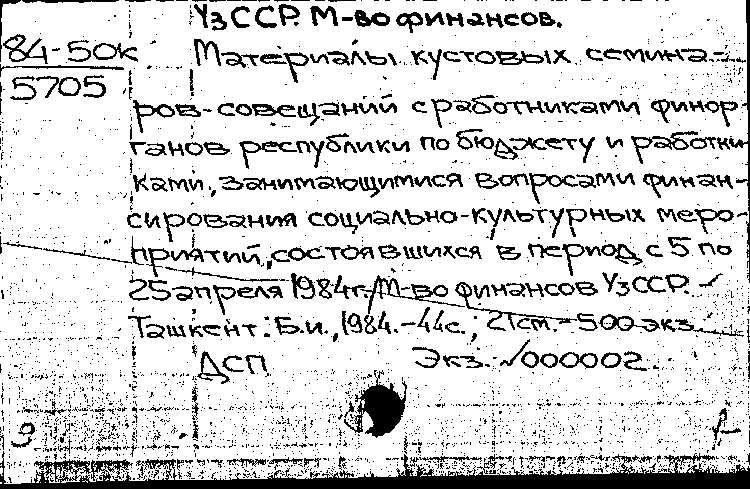 УзССР. М-во финансов.
84-50к
5705
Материалы кустовых семина-
ров-совещаний с работниками финор-
ганов республики по бюджету и работни-
ками, занимающимися вопросами финан-
сирования социально-культурных меро-
приятий, состоявшихся в период с 5 по
25 апреля 1984г./М-во финансов УзССР. -
Ташкент: Б.и., 1984.-44с.; 21см.-500 экз.
ДСП Экз. №000002.